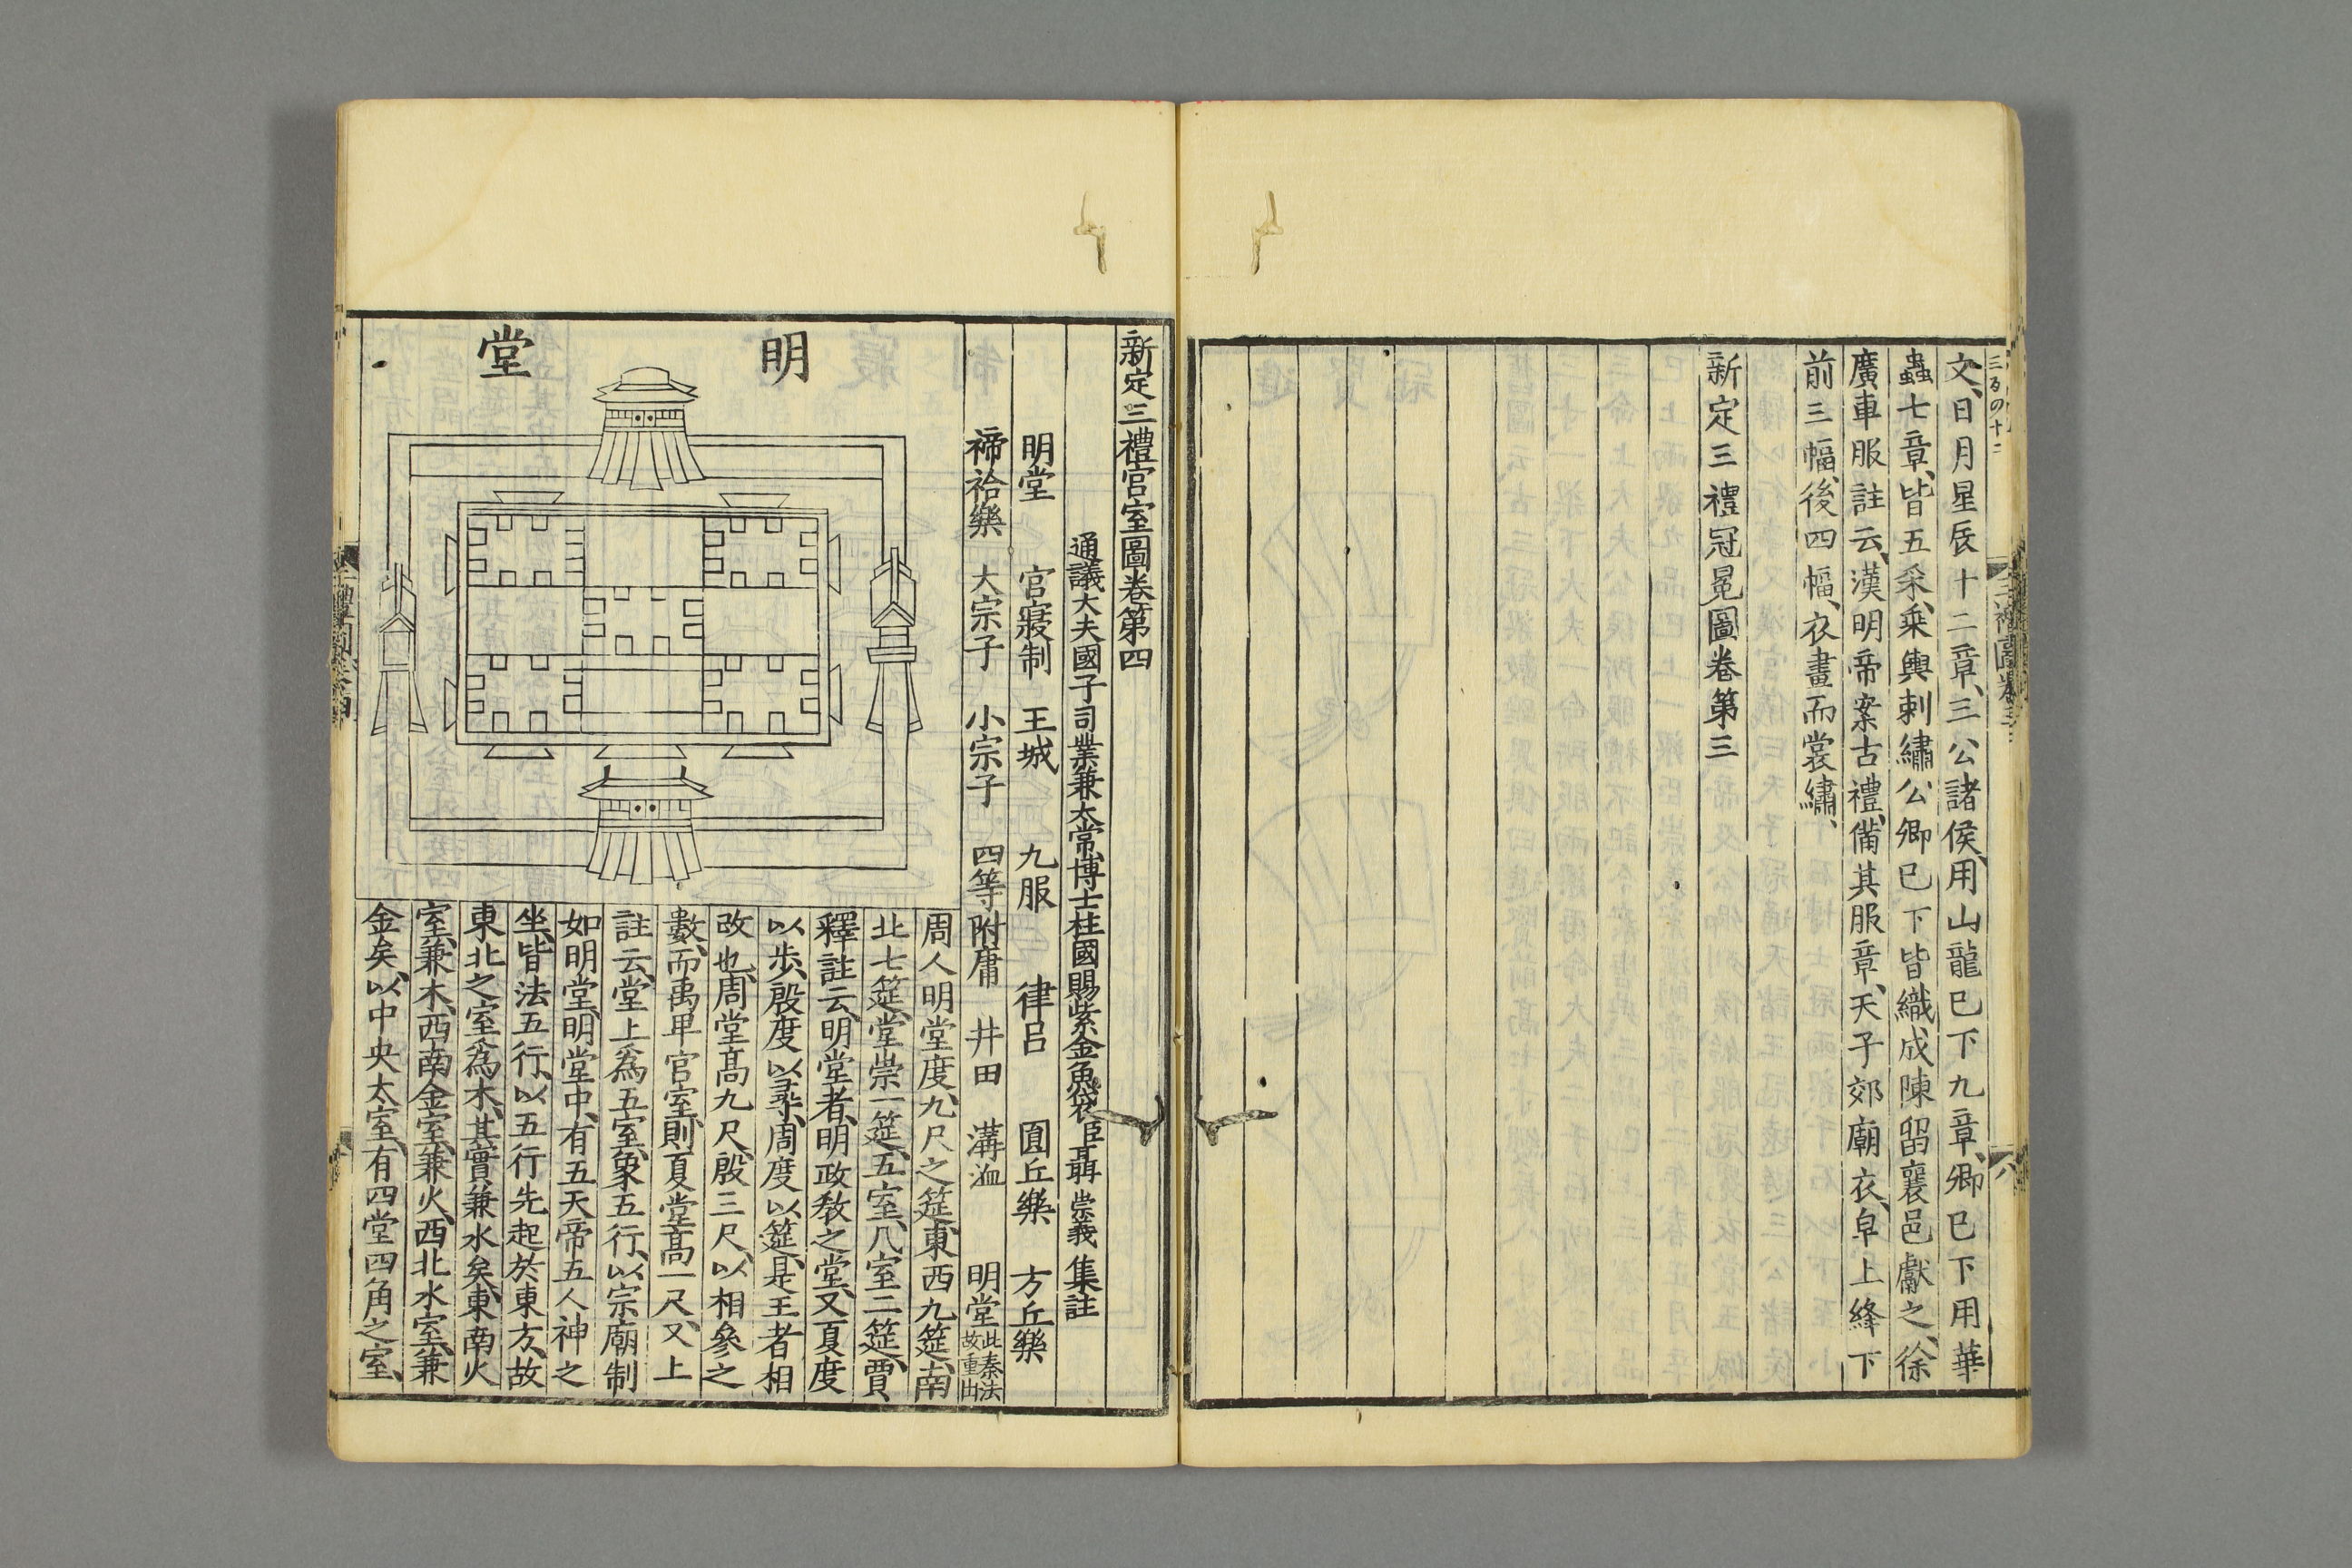 文、日月星辰十二章、三公諸侯、用山龍已下九章、卿已下用華
蟲七章、皆五采、乗輿刺繡、公卿已下皆織成、陳留襄邑獻之、徐
廣車服註云、漢明帝案古禮、備其服章、天子郊廟衣、皁上絳下
前三幅、後四幅、衣畫而裳繡、
新定三禮冠冕圖卷第三
六
新定三禮宫室圖卷第四
通議大夫國子司業兼太常博士柱國賜紫金魚袋臣聶崇義集註
明堂 宫寢制 王城 九服 律呂 圓丘樂 方丘樂
禘祫樂 大宗子 小宗子 四等附庸 井田 溝洫 明堂此秦法故重出
明堂
周人明堂、度九尺之筵、東西九筵、南
北七筵、堂崇一筵、五室、凡室二筵、賈
釋註云、明堂者、明政教之堂、又夏度
以歩、殷度以尋、周度以筵、是王者相
改也、周堂髙九尺、殷三尺、以相參之
數、而禹卑宫室、則夏堂髙一尺、又上
註云、堂上爲五室、象五行、以宗廟制
如明堂、明堂中、有五天帝五人神之
坐、皆法五行、以五行先起於東方、故
東北之室爲木、其實兼水矣、東南火
室、兼木、西南金室、兼火、西北水室、兼
金矣、以中央太室、有四堂四角之室、